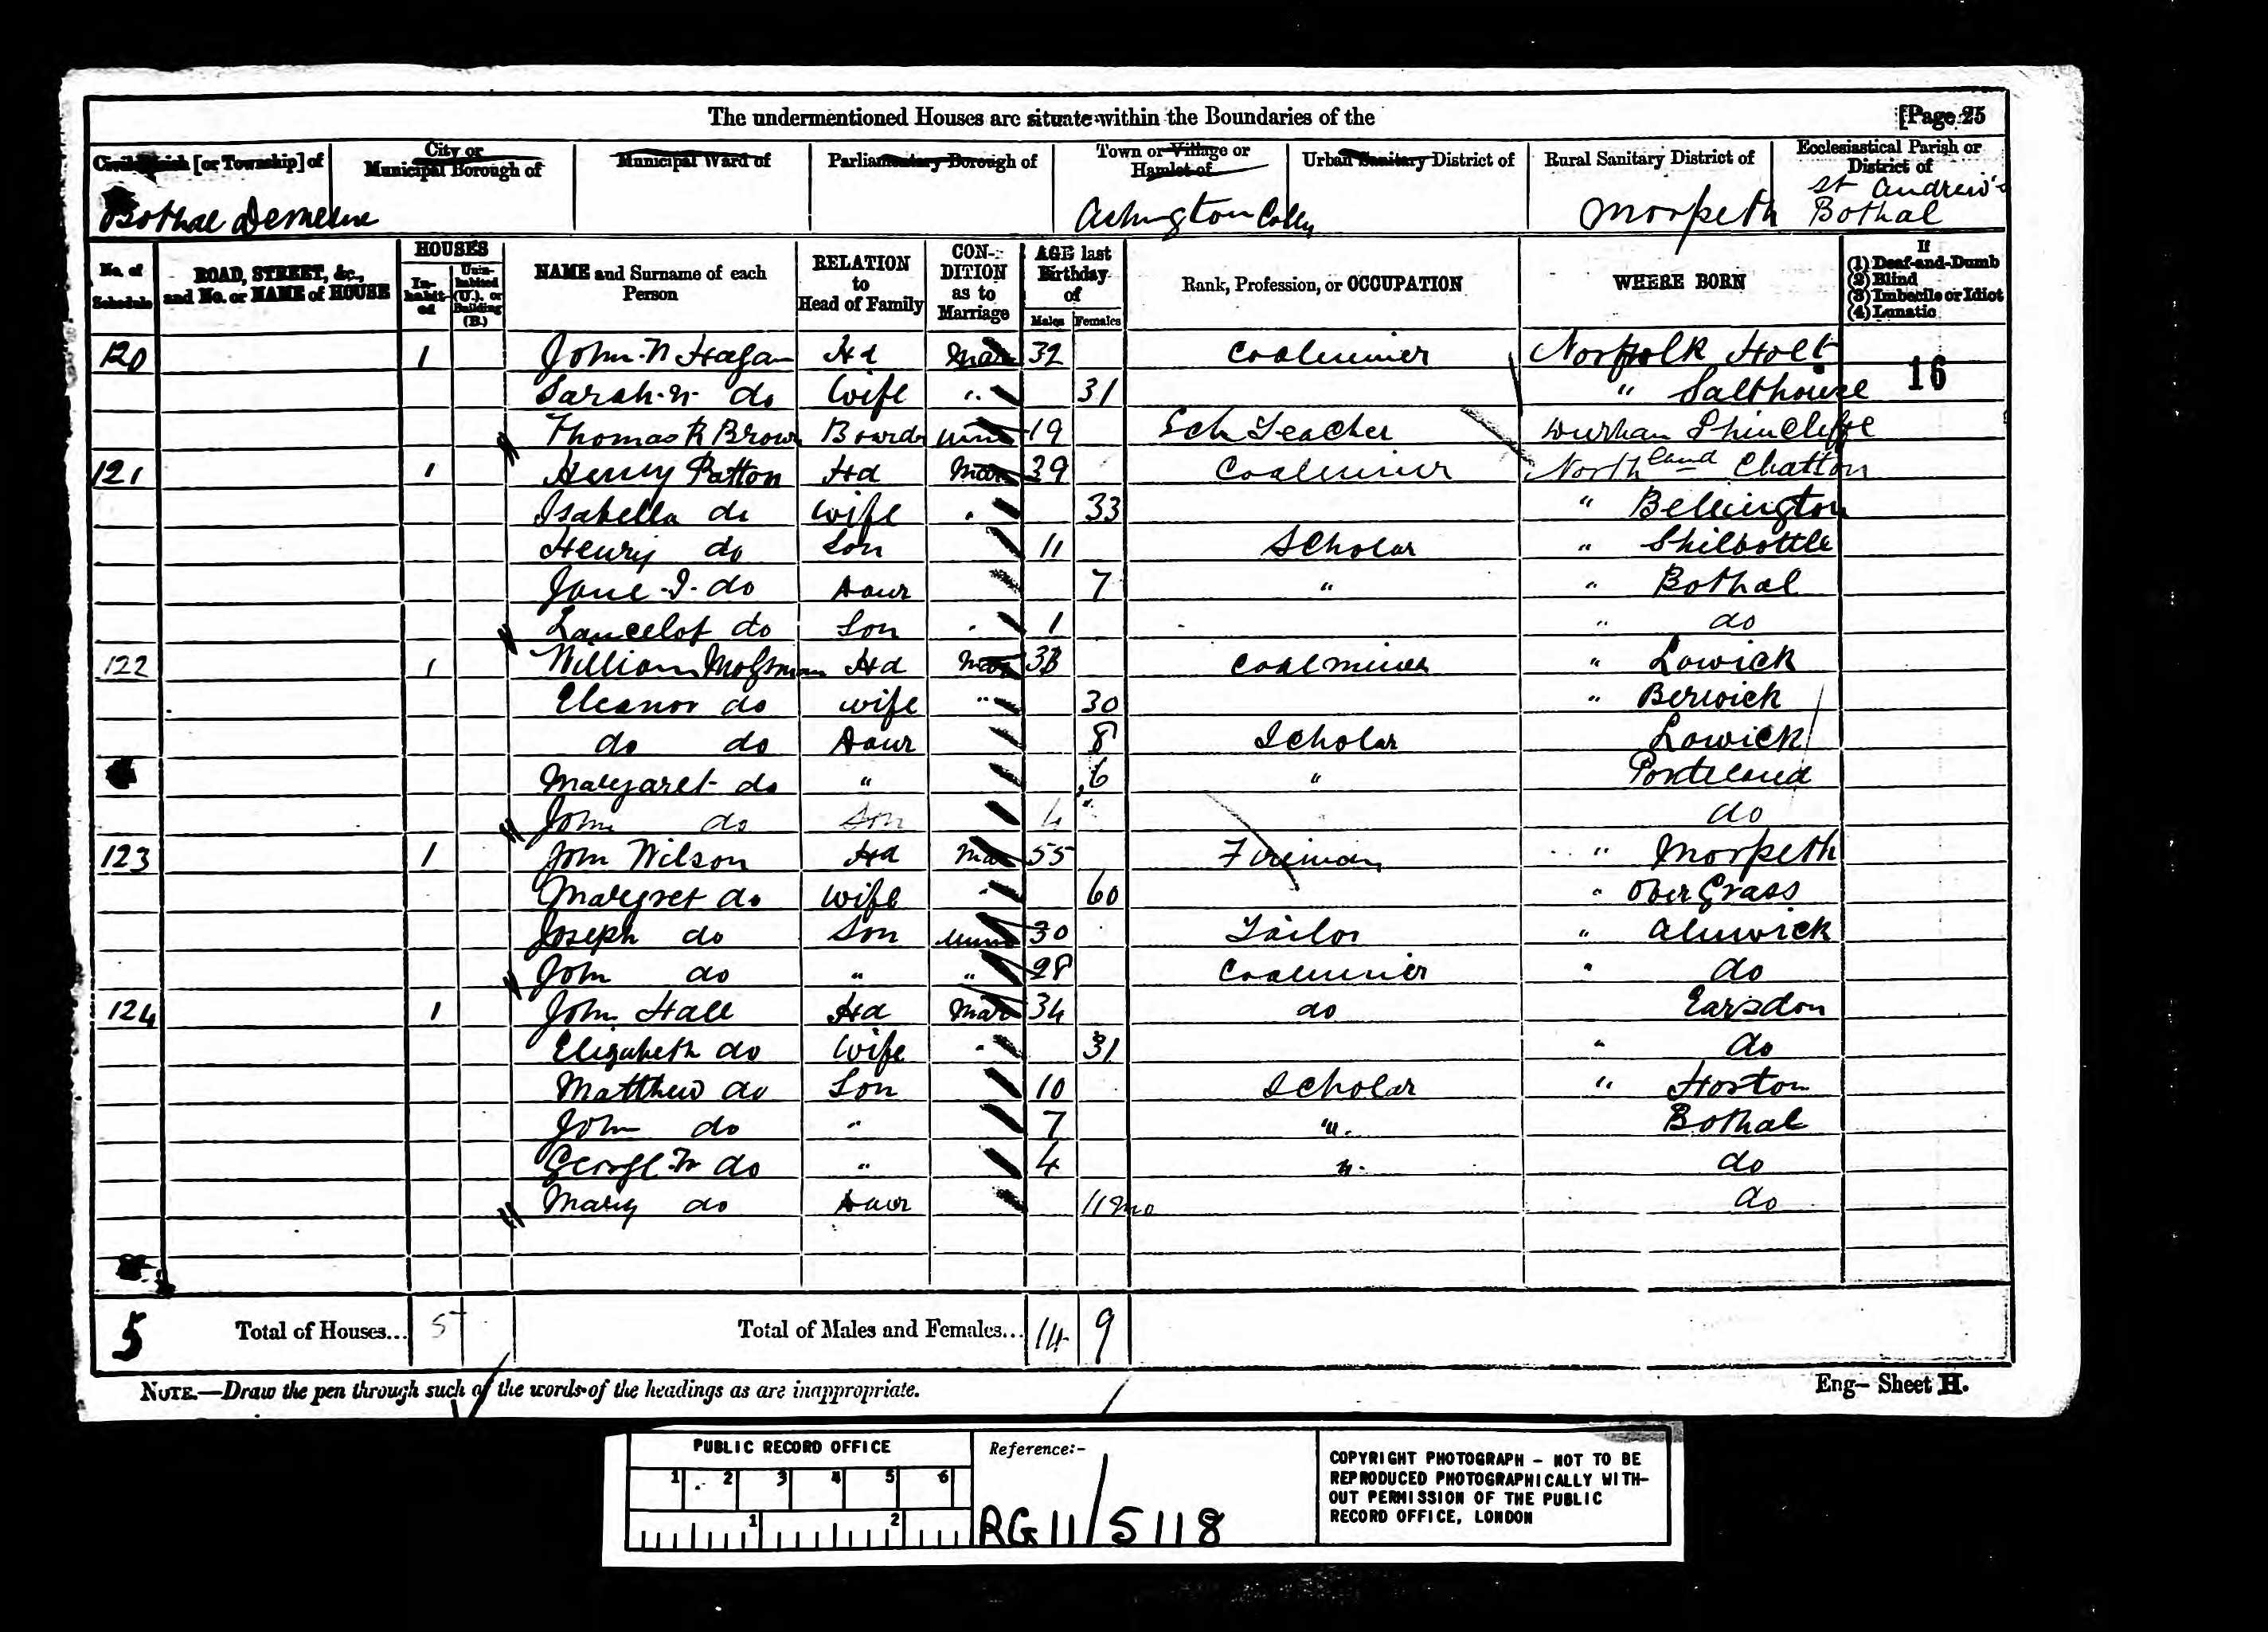 The undermentioned Houses are situate within the Boundaries of the [Page 25
Civil Parish [or Township] of City or Municipal Borough of Municipal Ward of Parliamentary Borough of Town or Village or Hamlet of Urban Sanitary District of Rural Sanitary District of Ecclesiastical Parish or District of
Bothal Demesne Ashington Colly Morpeth St Andrew's Bothal
No. of Schedule ROAD, STREET, &c., and No. or NAME of HOUSE HOUSES Inhabited Uninhabited (U.), or Building (B.) NAME and Surname of each Person RELATION to Head of Family CONDITION as to Marriage AGE last Birthday of Males Females Rank, Profession, or OCCUPATION WHERE BORN If (1) Deaf-and-Dumb (2) Blind (3) Imbecile or Idiot (4) Lunatic
120 1 John N Hagan Hd Mar 32 Coalminer Norfolk Holt 16
Sarah do Wife " 31 " Salthouse
Thomas R Brown Boarder Unm 19 Sch Teacher Durham Shincliffe
121 1 Henry Patton Hd Mar 39 Coalminer Northland Chatton
Isabella do Wife " 33 " Bellington
Henry do Son 11 Scholar " Shilbottle
Jane I. do Daur 7 " " Bothal
Lancelot do Son 1 " do
122 1 William Hd Mar 33 Coalminer " Lowick
Eleanor do Wife " 30 " Berwick
do do Daur 8 Scholar Lowick
Margaret do " 6 " Ponteland
John do Son 4 do
123 1 John Wilson Hd Mar 55 Fireman " Morpeth
Margret do Wife " 60 " Over Grass
Joseph do Son Unm 30 Tailor " Alnwick
John do " " 28 Coalminer " do
124 1 John Hall Hd Mar 34 do Earsdon
Elizabeth do Wife " 31 " do
Matthew do Son 10 Scholar " Horton
John do " 7 " Bothal
George W do " 4 " do
Mary do Daur 11mo do
5 Total of Houses... 5 Total of Males and Females... 14 9
NOTE.—Draw the pen through such of the words of the headings as are inappropriate. Eng— Sheet H.
PUBLIC RECORD OFFICE
1 2 3 4 5 6
1 2
Reference:-
RG 11/5118
COPYRIGHT PHOTOGRAPH – NOT TO BE
REPRODUCED PHOTOGRAPHICALLY WITH-
OUT PERMISSION OF THE PUBLIC
RECORD OFFICE, LONDON